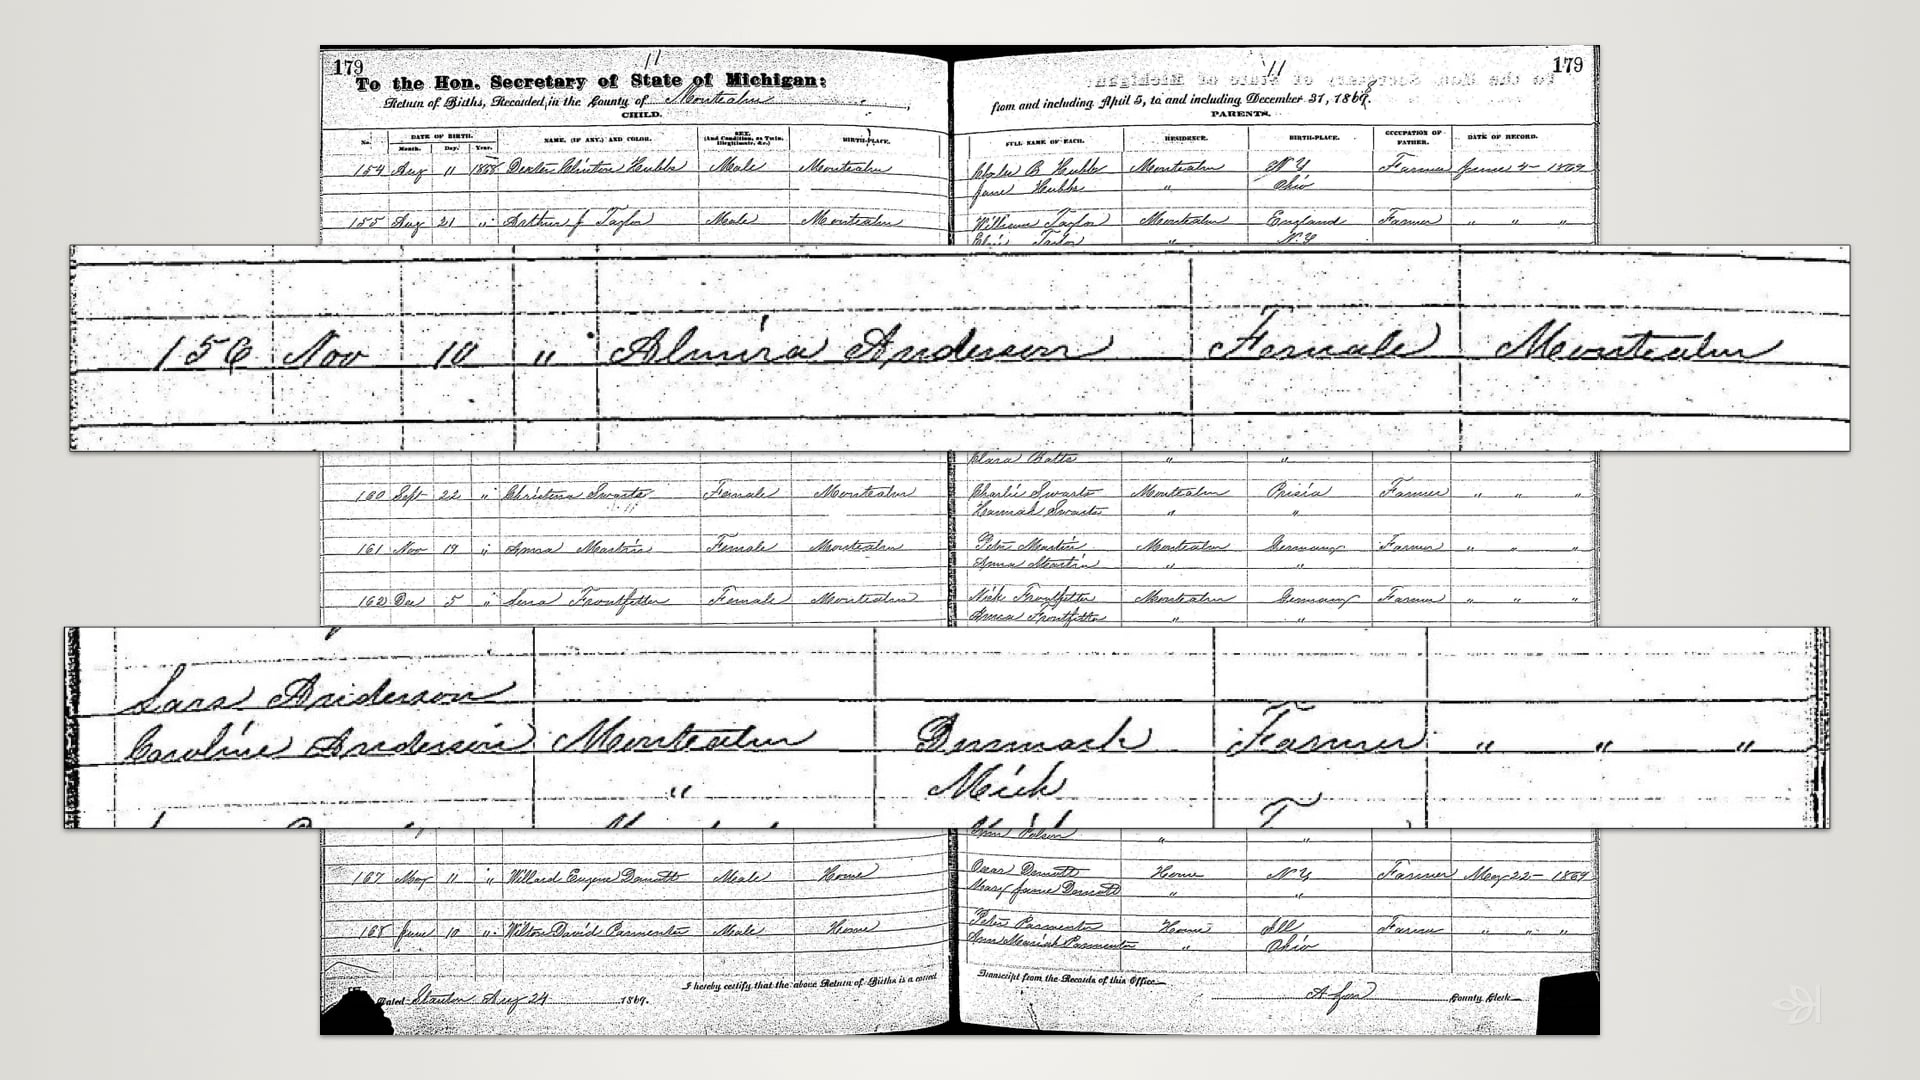 179
11
To the Hon. Secretary of State of Michigan:
Return of Births, Recorded in the County of Montcalm
CHILD.
No. DATE OF BIRTH. Month. Day. Year. NAME, (IF ANY,) AND COLOR. SEX. (And Condition, as Twin, Illegitimate, &c.) BIRTH-PLACE.
154 Aug 11 1868 Dexter Clinton Hubbs Male Montcalm
155 Aug 21 " Arthur J Taylor Male Montcalm
179
11
from and including April 5, to and including December 31, 1869.
PARENTS.
FULL NAME OF EACH. RESIDENCE. BIRTH-PLACE. OCCUPATION OF FATHER. DATE OF RECORD.
Charles B Hubbs Montcalm N Y Farmer June 4 - 1869
Jane Hubbs " Ohio
William Taylor Montcalm England Farmer " " "
Taylor " N. Y
156 Nov 10 " Almira Anderson Female Montcalm
Clara Batts " "
160 Sept 22 " Christena Swarts Female Montcalm
Charlie Swarts Montcalm Farmer " " "
Hannah Swarts " "
161 Nov 19 " Anna Martin Female Montcalm
Peter Martin Montcalm Germany Farmer " " "
Anna Martin " "
162 Dec 5 " Lena Female Montcalm
Nick Montcalm Germany Farmer " " "
" "
Lars Anderson
Caroline Anderson Montcalm Denmark Farmer " " "
" Mich
" "
167 May 11 " Willard Eugene Male Home
Oscar Home N Y Farmer May 22 - 1869
Mary Jane " "
168 June 10 " Wilton David Parmenter Male Home
Peter Parmenter Home Ill Farmer " " "
Ann Mariah Parmenter " Ohio
I hereby certify that the above Return of Births is a correct
Transcript from the Records of this Office
Dated Stanton Aug 24 1869.
County Clerk